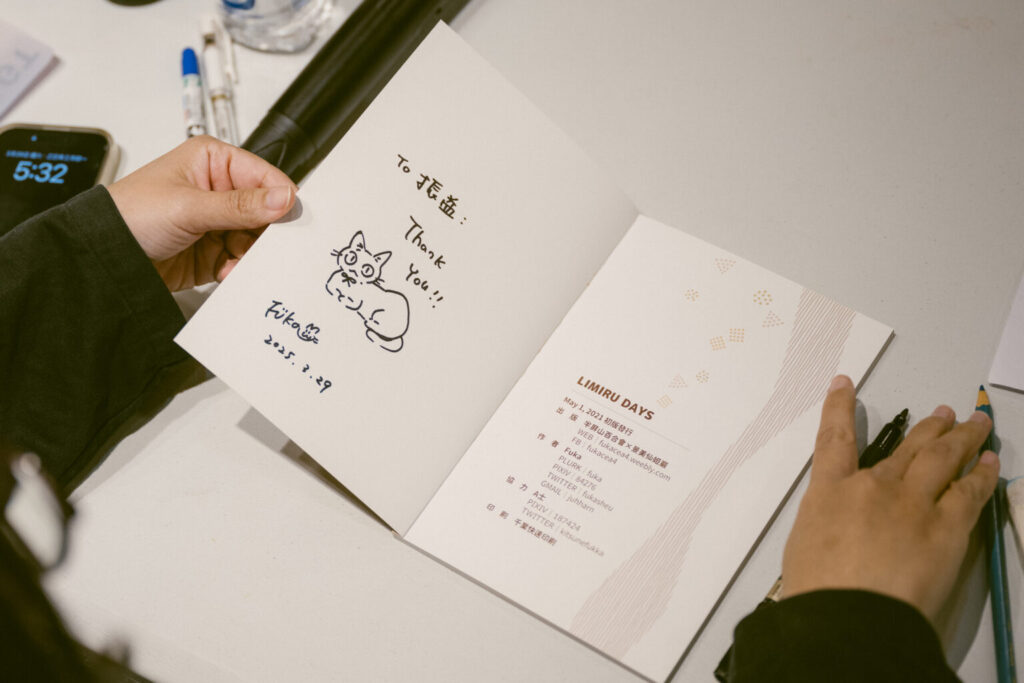 5:32
To 振益:
Thank
You!!
Fuka
2025.3.29
LIMIRU DAYS
May 1, 2021 初版發行
出 版 半屏山百合會×景美仙姐
WEB|fukacea4.weebly.com
FB|fukacea4
作 者 Fuka
PLURK|fuka
PIXIV|84276
TWITTER|fukasheu
GMAIL|juhharn
協 力 A士
PIXIV|187424
TWITTER|kitsunefukka
印 刷 千業快速印刷